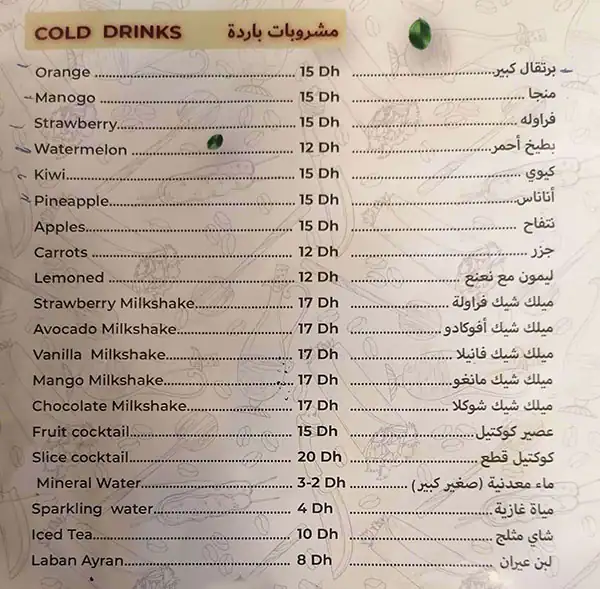 COLD DRINKS مشروبات باردة
Orange 15 Dh برتقال كبير
Manogo 15 Dh منجا
Strawberry 15 Dh فراوله
Watermelon 12 Dh بطيخ أحمر
Kiwi 15 Dh كيوي
Pineapple 15 Dh أناناس
Apples 15 Dh تتفاح
Carrots 12 Dh جزر
Lemoned 12 Dh ليمون مع نعنع
Strawberry Milkshake 17 Dh ميلك شيك فراولة
Avocado Milkshake 17 Dh ميلك شيك أفوكادو
Vanilla Milkshake 17 Dh ميلك شيك فانيلا
Mango Milkshake 17 Dh ميلك شيك مانغو
Chocolate Milkshake 17 Dh ميلك شيك شوكلا
Fruit cocktail 15 Dh عصير كوكتيل
Slice cocktail 20 Dh كوكتيل قطع
Mineral Water 3-2 Dh ماء معدنية (صغير كبير)
Sparkling water 4 Dh مياة غازية
Iced Tea 10 Dh شاي مثلج
Laban Ayran 8 Dh لبن عيران